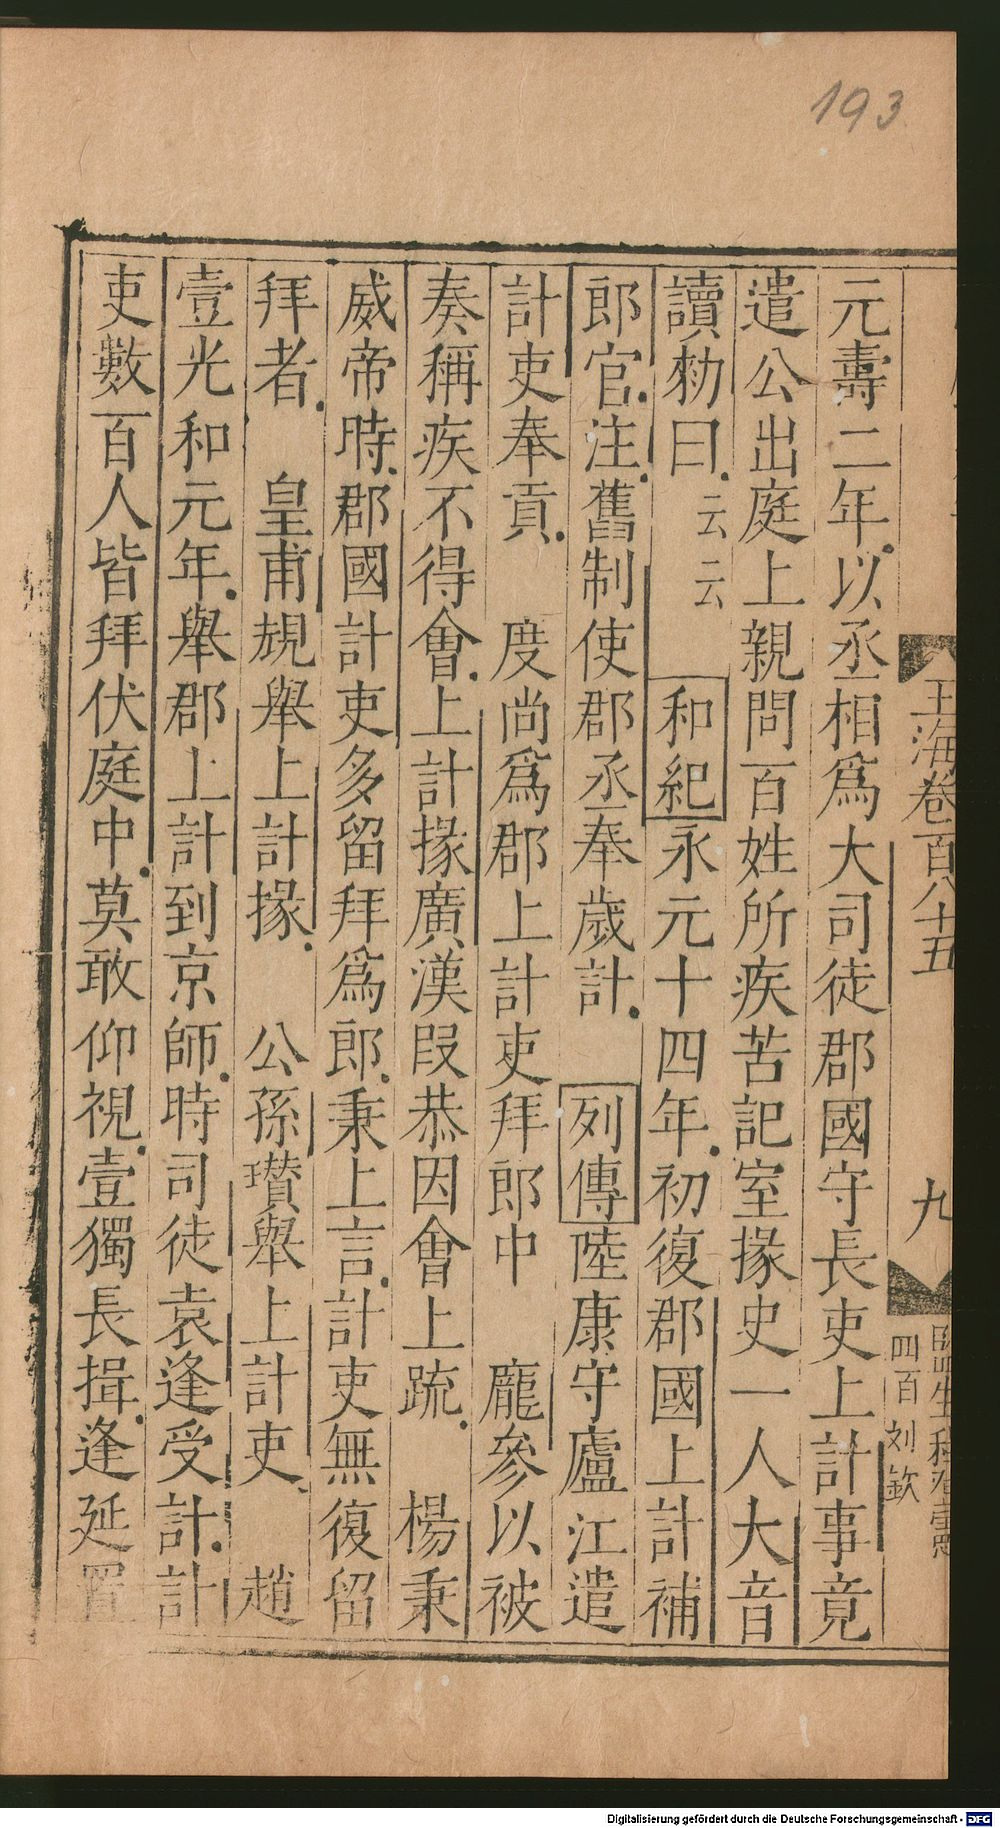 193
玉海卷百八十五
九
四百 刘欽
元壽二年以丞相爲大司徒郡國守長吏上計事竟
遣公出庭上親問百姓所疾苦記室掾史一人大音
讀勑曰云云 和紀永元十四年初復郡國上計補
郎官注舊制使郡丞奉歲計 列傳陸康守廬江遣
計吏奉貢 度尚爲郡上計吏拜郎中 龐參以被
奏稱疾不得會上計掾廣漢叚恭因會上䟽 楊秉
威帝時郡國計吏多留拜爲郎秉上言計吏無復留
拜者 皇甫規舉上計掾 公孫瓚舉上計吏 趙
壹光和元年舉郡上計到京師時司徒袁逢受計計
吏數百人皆拜伏庭中莫敢仰視壹獨長揖逢延置
Digitalisierung gefördert durch die Deutsche Forschungsgemeinschaft - DFG